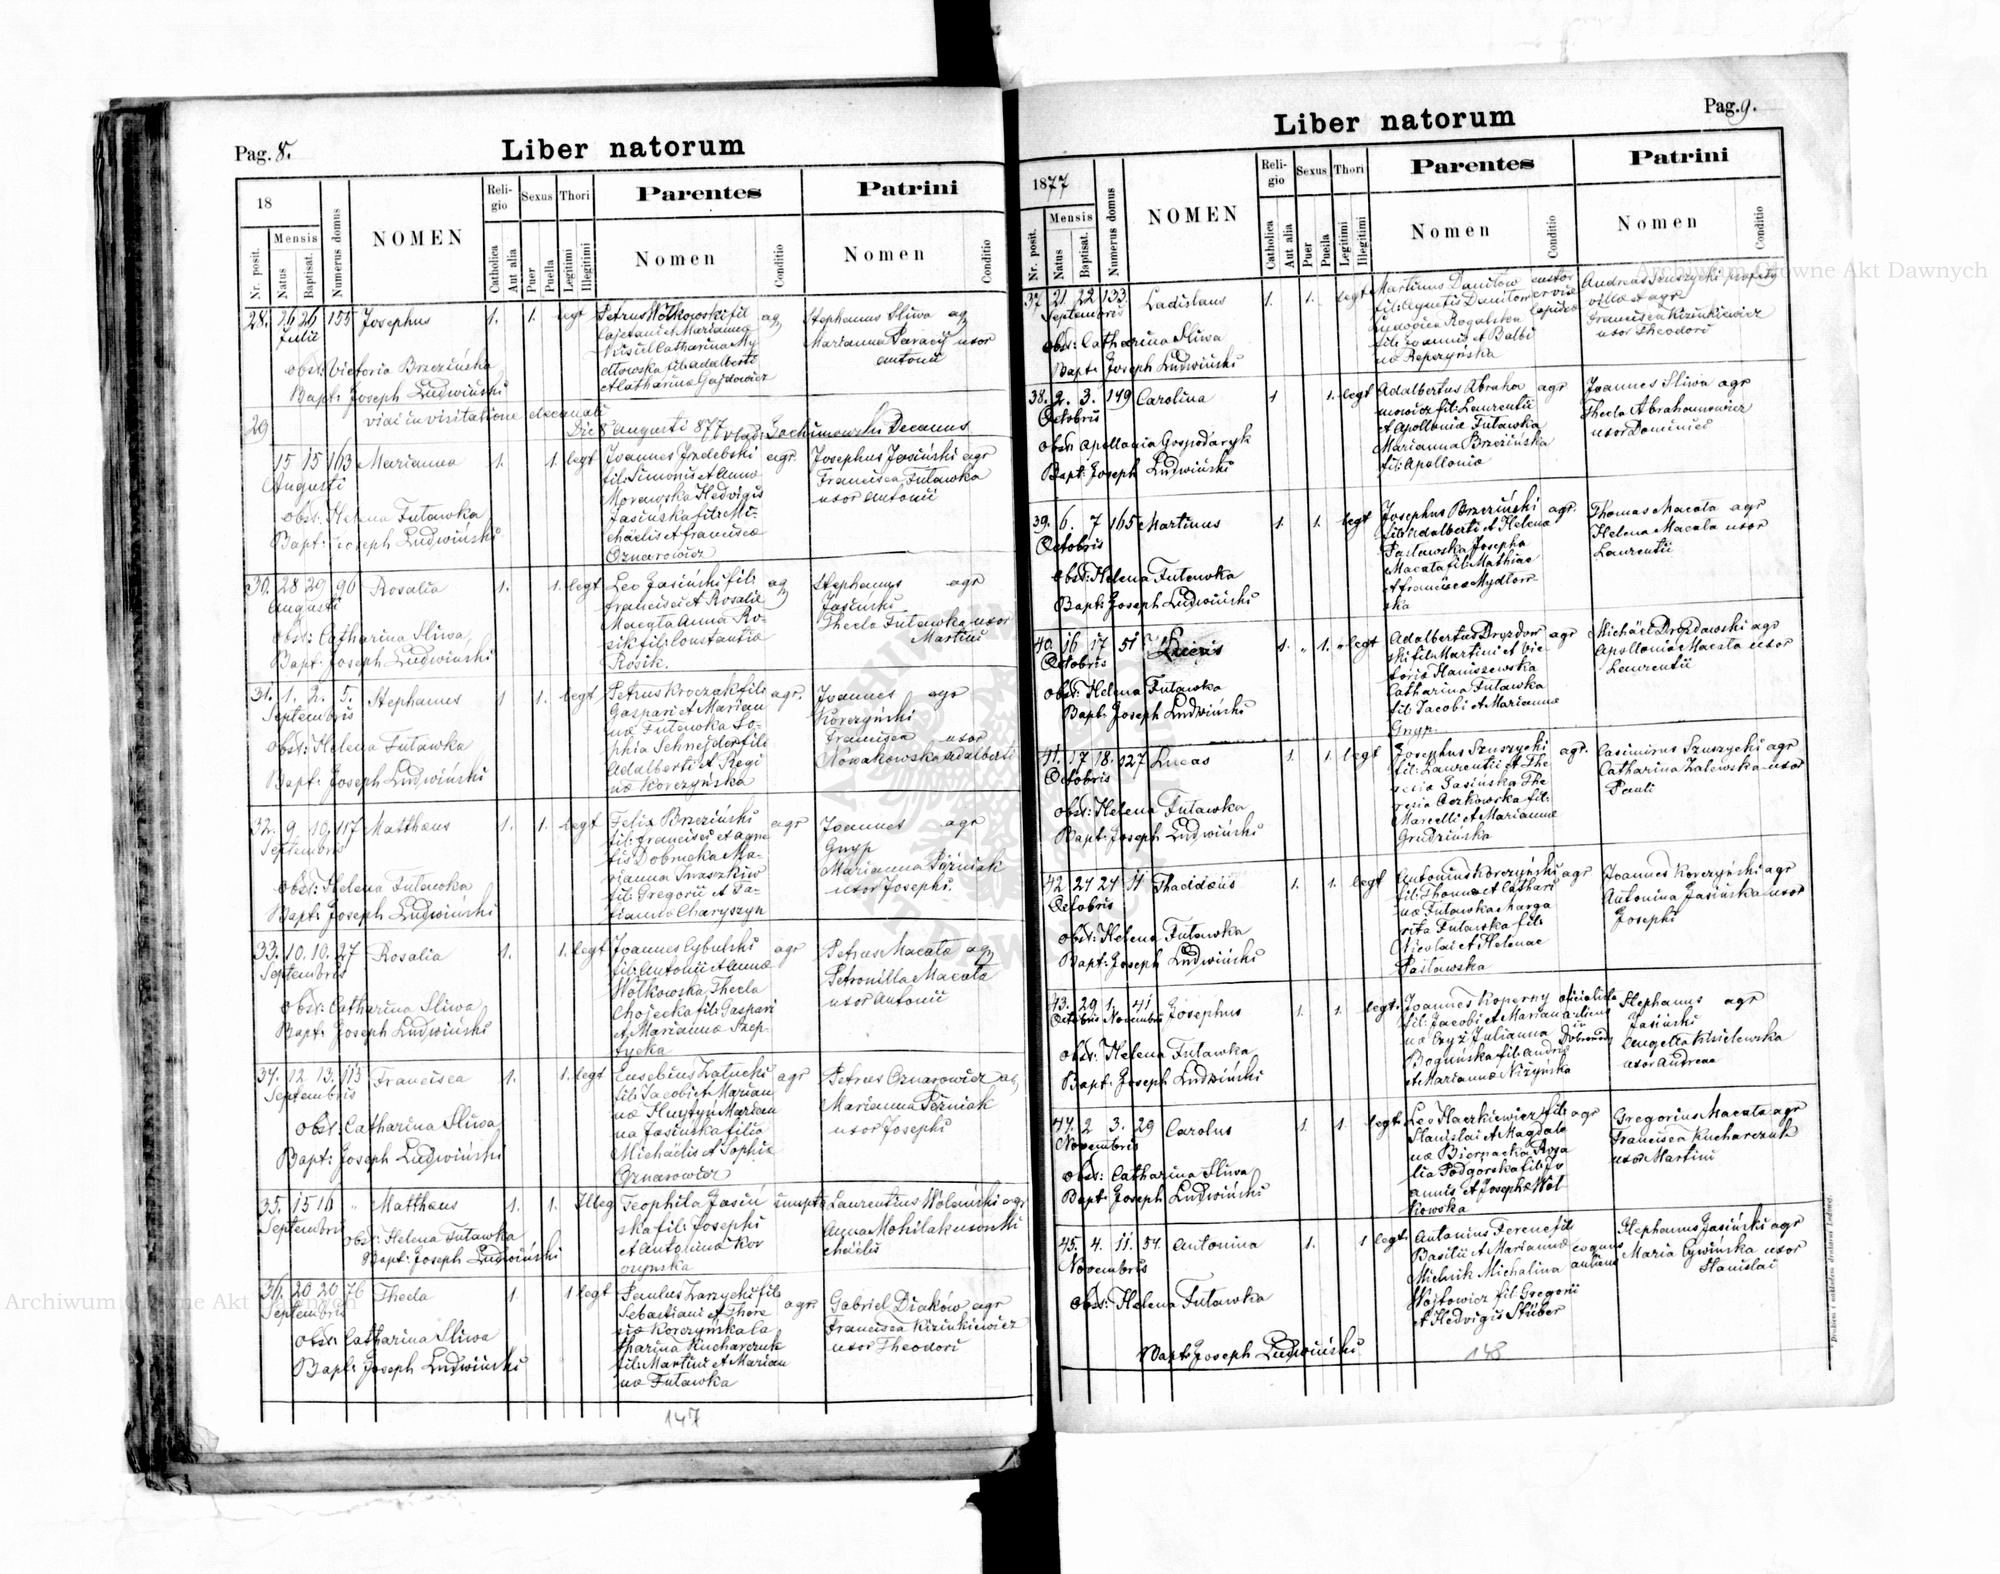 Pag. 8.
Liber natorum
18
Nr. posit.
Mensis
Natus
Baptisat.
Numerus domus
NOMEN
Religio
Catholica
Aut alia
Sexus
Puer
Puella
Thori
Legitimi
Illegitimi
Parentes
Nomen
Conditio
Patrini
Nomen
Conditio
28. 26 26 155 Josephus 1. 1. legt
Julii
Petrus Wołkowski fil
Cajetani et Marianna
Catharina My
dłowska fil: adalberti
et Catharinæ Gajdowicz
Stephanus Sliwa
Marianna uxor
antonii
obst: Victoria Brzezińska
Bapt: Joseph Ludwiński
29
vidi in visitatione decanali
Die 8 augusti 877 Decanus
15 15 163 Marianna 1. 1. legt
Augusti
Joannes Jzdebski agr.
fil: Simonis et Anna
Morawska Hedvigis
Jasińska fil: Mi-
chaelis et francisca
Oznarowicz
Josephus Jasiński agr
Francisca Futawka
uxor antonii
obst: Helena Futawka
Bapt: Joseph Ludwiński
30. 28 29 96 Rosalia 1. 1. legt
Augusti
Leo Jasiński fil:
francisci et Rosalia
Macata Anna Ro-
sik fil: Constantia
Rosik.
Stephanus agr
Jasiński
Thecla Futawka uxor
Martini
obst: Catharina Sliwa
Bapt: Joseph Ludwinski
31. 1. 2. 5. Stephanus 1 1. legt
Septembris
Petrus Kroczak fil: agr.
Gaspari et Marian
næ Futawka So-
phia Schnejder fil:
Adalberti et Regi
næ Korczyńska
Joannes agr
Korczyński
Francisca uxor
Nowakowska adalberti
obst: Helena Futawka
Bapt: Joseph Ludwiński
32. 9 10. 117 Matthæus 1. 1. legt
Septembris
Felix Brzeziński agr
fil: francisci et agne
tis Dobrucka Ma-
rianna Iwaszkiw
fil: Gregorii et Ta-
tianna Charyszyn
Joannes agr
Gnyp
Marianna Péżniak
uxor Josephi
obst: Helena Futawka
Bapt: Joseph Ludwiński
33. 10. 10. 27 Rosalia 1. 1. legt
Septembris
Joannes Cybulski agr
fil: Antonii et Annæ
Wołkowska Thecla
Chojecka fil: Gaspari
et Mariannæ Szep-
tycka
Petrus Macata
Petronilla Macata
uxor Antonii
obst: Catharina Sliwa
Bapt: Joseph Ludwiński
34. 12 13. 115 Francisca 1. 1. legt
Septembris
Eusebius Załucki agr
fil: Jacobi et Marian
næ Huytyń Marian
na Jasińska filia
Michaelis et Sophia
Oznarowicz
Petrus Oznarowicz
Marianna Péżniak
uxor Josephi
obst: Catharina Sliwa
Bapt: Joseph Ludwiński
35. 15 16 " Matthæus 1. 1. Illeg
Septembris
Teophila Jasiń
ska fil: Josephi
et Antoninæ Kor
czynska
Laurentius Woleński agr
Anna Mohilak uxor Mi
chaelis
obst: Helena Futawka
Bapt: Joseph Ludwiński
36. 20 20 76 Thecla 1. 1 legt
Septembris
Paulus Zarycki fil:
Sebastiani et There agr.
siæ Korczyńska Ca
tharina Kucharczuk
fil: Martini et Marian
næ Futawka
Gabriel Diaków agr
Francisca Kizinkiewicz
uxor Theodori
obst: Catharina Sliwa
Bapt: Joseph Ludwiński
147
Pag. 9.
Liber natorum
1877
Nr. posit.
Mensis
Natus
Baptisat.
Numerus domus
NOMEN
Religio
Catholica
Aut alia
Sexus
Puer
Puella
Thori
Legitimi
Illegitimi
Parentes
Nomen
Conditio
Patrini
Nomen
Conditio
37. 21. 22 133. Ladislaus 1. 1. legt
Septembris
Martinus Daniłow custos
fil: Danilow
Ludovica Rogalska
fil: Joannis et Balbi
næ Repczyńska
Andreas Szuszycki
villa et agr
Francisca Kizinkiewicz
uxor Theodori
obst: Catharina Sliwa
Bapt: Joseph Ludwiński
38. 2. 3. 149 Carolina 1 1. legt
Octobris
Adalbertus Abraha agr
mowicz fil: Laurentii
et Apolloniæ Futawka
Marianna Brzezińska
fil: Apolloniæ
Joannes Sliwa agr
Thecla Abrahamowicz
uxor Dominici
obst: Apollonia Gospodaryk
Bapt: Joseph Ludwiński
39. 6. 7 165 Martinus 1. 1. legt
Octobris
Josephus Brzeziński agr.
fil: Adalberti et Helena
Pasławska Josepha
Macata fil: Mathiae
et francisca Mydłow
ska
Thomas Macata agr
Helena Macata uxor
Laurentii
obst: Helena Futawka
Bapt: Joseph Ludwiński
40. 16 17 51 Lucas 1. " 1. " legt
Octobris
Adalbertus Drozdow agr
ski fil: Martini et Vic
toria Haniszewska
Catharina Futawka
fil: Jacobi et Mariannæ
Gnyp.
Michael Drozdawski agr
Apollonia Macata uxor
Laurentii
obst: Helena Futawka
Bapt: Joseph Ludwiński
41. 17 18. 127 Lucas 1. 1. legt
Octobris
Josephus Szuszycki agr.
fil: Laurentii et The
resiæ Jasińska The
resia Aczkowska fil:
Marcelli et Mariannæ
Grudzińska
Casimirus Szuszycki agr
Catharina Zalewska uxor
Pauli
obst: Helena Futawka
Bapt: Joseph Ludwiński
42 24 24 11 Thaddæus 1. 1. legt
Octobris
Antonius Korczyński agr
fil: Thomæ et Cathari
næ Futawska Marga
rita Futawska fil:
Nicolai et Helenae
Pasławska
Joannes Korczyński agr
Antonina Jasińska uxor
Josephi
obst: Helena Futawka
Bapt: Joseph Ludwiński
43. 29 1. 41 Josephus 1. 1. legt.
Octobris Novembris
Joannes Koperny oficialista
fil: Jacobi et Marian
næ Czyż Julianna in
Bogunska fil: Andre
et Mariannæ Niżyńska
Stephanus agr
Jasiński
Angella Kisielewska
uxor Andreae
obst: Helena Futawka
Bapt: Joseph Ludwiński
44. 2 3. 29 Carolus 1. 1. legt.
Novembris
Leo Haczkiewicz fil: agr
Stanislai et Magdale
næ Biernacka Rosa
lia Podgórska fil: Jo
annis et Josephæ Wol
ńowska
Gregorius Macata agr
Francisca Kucharczuk
uxor Martini
obst: Catharina Sliwa
Bapt: Joseph Ludwiński
45. 4. 11. 54. Antonina 1. 1 legt.
Novembris
Antonius Ferenc fil
Basilii et Mariannæ
Mielnik Michalina
Wojtowicz fil: Gregorii
et Hedvigis Stüber
Stephanus Jasiński agr
Maria Cywińska uxor
Stanislai
obst: Helena Futawka
Bapt: Joseph Ludwiński
148
Archiwum Główne Akt Dawnych
Archiwum Główne Akt Dawnych
ARCHIWUM GŁÓWNE AKT DAWNYCH